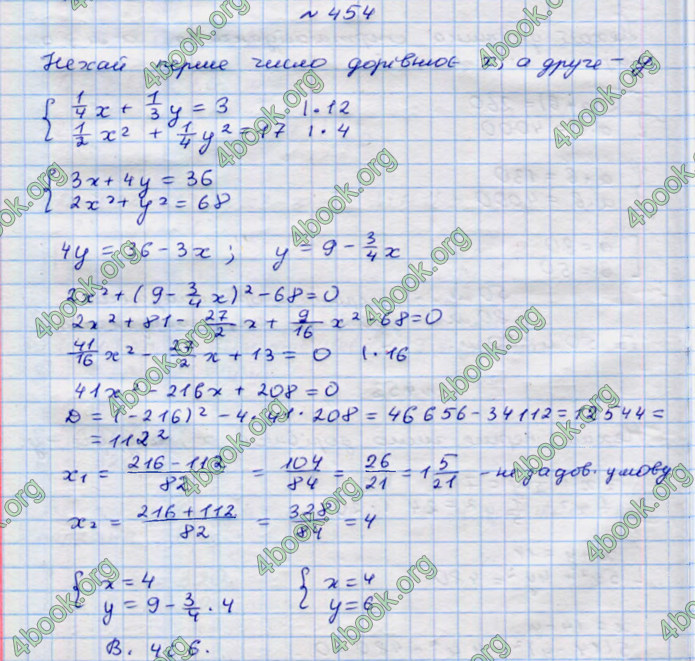 № 454
Нехай перше число дорівнює x, а друге – y
{ 1/4 x + 1/3 y = 3 | · 12
1/2 x² + 1/4 y² = 17 | · 4
{ 3x + 4y = 36
2x² + y² = 68
4y = 36 - 3x ; y = 9 - 3/4 x
2x² + (9 - 3/4 x)² - 68 = 0
2x² + 81 - 27/2 x + 9/16 x² - 68 = 0
41/16 x² - 27/2 x + 13 = 0 | · 16
41x² - 216x + 208 = 0
D = (-216)² - 4 · 41 · 208 = 46656 - 34112 = 12544 =
= 112²
x₁ = (216 - 112)/82 = 104/84 = 26/21 = 1 5/21 - не задов. умову
x₂ = (216 + 112)/82 = 328/84 = 4
{ x = 4 { x = 4
y = 9 - 3/4 · 4 y = 6
В. 4 і 6.
4book.org